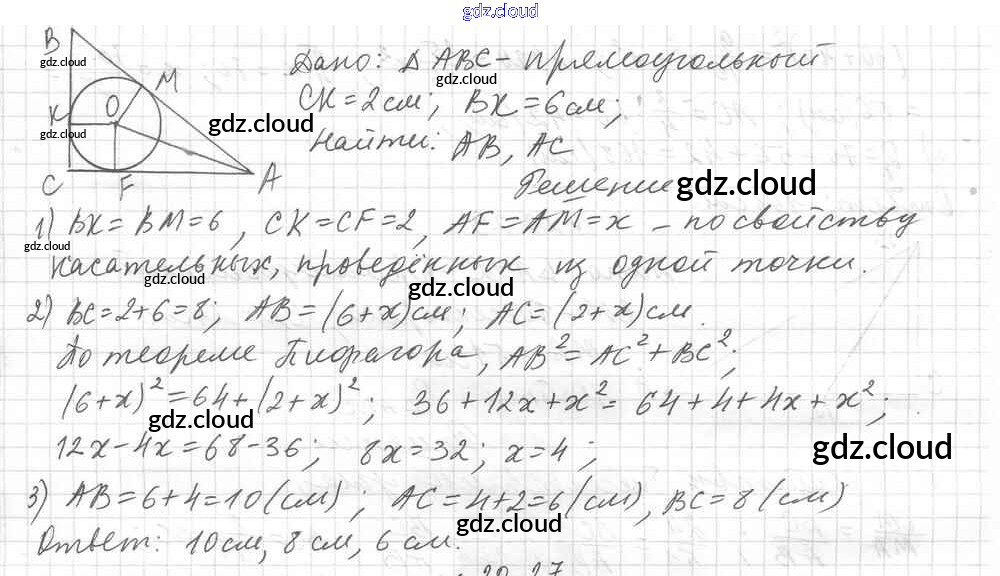 gdz.cloud
B
gdz.cloud
M
K
O
gdz.cloud
gdz.cloud
C
F
A
Дано: Δ ABC - прямоугольный
gdz.cloud
CK = 2 см; BK = 6 см;
Найти: AB, AC
Решение
gdz.cloud
1) BK = BM = 6, CK = CF = 2, AF = AM = x - по свойству
gdz.cloud
касательных, проведённых из одной точки.
gdz.cloud
2) BC = 2+6 = 8; AB = (6+x) см; AC = (2+x) см.
По теореме Пифагора, AB² = AC² + BC²;
(6+x)² = 64 + (2+x)²; 36 + 12x + x² = 64 + 4 + 4x + x²;
gdz.cloud
12x - 4x = 68 - 36; 8x = 32; x = 4;
gdz.cloud
3) AB = 6+4 = 10 (см); AC = 4+2 = 6 (см), BC = 8 (см)
gdz.cloud
Ответ: 10 см, 8 см, 6 см.